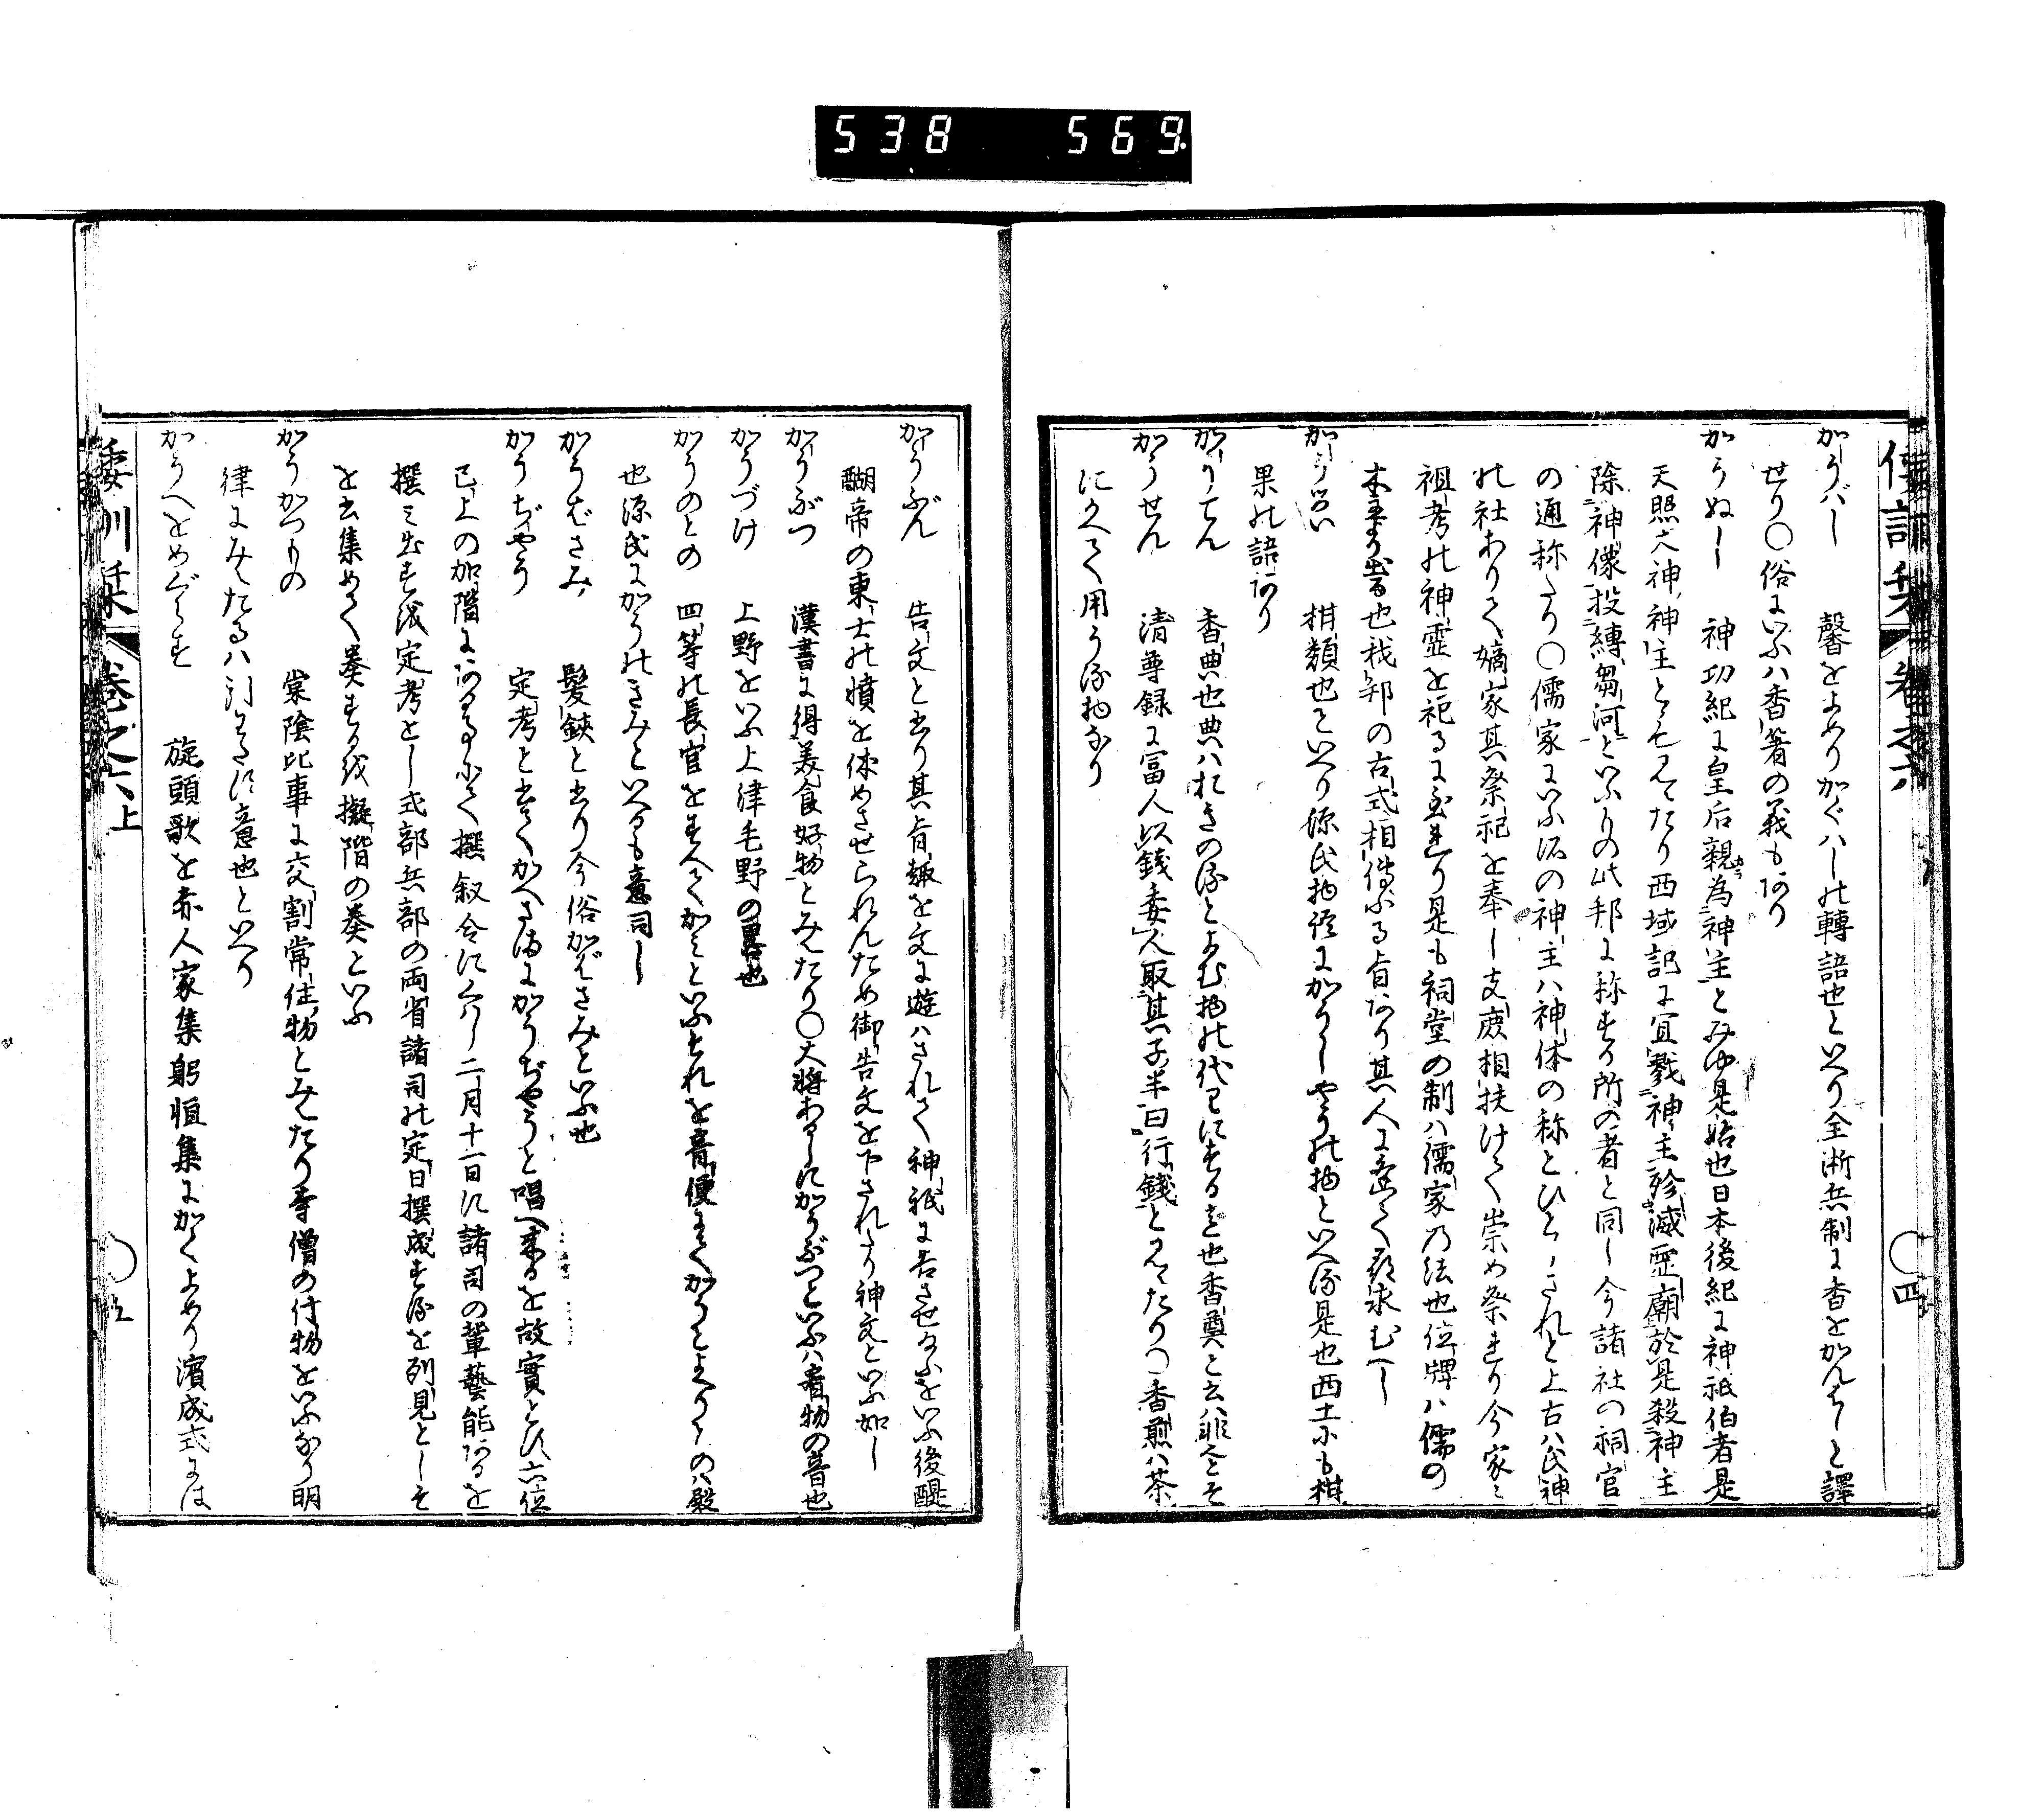 538 569
かうバし 馨をよめりかぐハしの轉語也といへり全浙兵制に香をかんばしと譯
せり〇俗にいふハ香箸の義もあり
かうぬし 神功紀に皇后親為神主とみゆ是始也日本後紀に神祇伯者是
天照大神ノ神主ともみえたり西域記に宜戮神主殄滅霊廟於是殺神主
除神像投縛芻河といふもの此邦に称する所の者と同し今諸社の祠官
の通称たり〇儒家にいふ所の神主ハ神体の称とひとしされと上古ハ氏神
の社ありて嫡家其祭祀を奉し支庶相扶けて崇め祭れり今家々
祖考の神霊を祀るに至れり是も祠堂の制ハ儒家乃法也位牌ハ儒の
木主より出る也我邦の古式相傳ふる旨あり其人に逢て尋求むへし
かうじ 柑類也といへり源氏物語にかうじやうの物といへる是也西土にも柑
果の語あり
かうでん 香典也典ハおきのるとよむ物の代りにする也香奠と云ハ非なりとそ
かうせん 清尊録に富人以錢委人取其子半曰行錢とみえたり〇香煎ハ茶
にかへて用うる物なり
倭訓栞 巻之六 四
かうぶん 告文と書り其旨趣を文に遊ハされて神祇に告させ給ふをいふ後醍
醐帝の東士の憤を休めさせられんため御告文を下されたり神文といふ如し
かうぶつ 漢書に得美食好物とみえたり〇大将あるしにかうぶつといふハ看物の音也
かうづけ 上野をいふ上津毛野の畧也
かうのとの 四等の長官をすへてかみといふそれを音便にてかうとよへりとのハ殿
也源氏にかうのきみといへるも意同し
かうばさみ 髪鋏と書り今俗かばさみといふ也
かうぢやう 定考と書てかへさまにかうぢやうと唱へ来るを故實とす六位
已上の加階にあづる事にて撰叙令に名へし二月十一日に諸司の輩藝能あるを
撰ミ出すを定考とし式部兵部の両省諸司の定日撰成するを列見としそ
を書集めて奏するを擬階の奏といふ
かうかつもの 棠陰比事に交割常住物とみえたり寺僧の什物をいふなり明
律にみえたるハ引わたす意也といへり
かうへをめぐらす 旋頭歌を赤人家集躬恒集にかくよめり濱成式には
倭訓栞 巻之六上 五